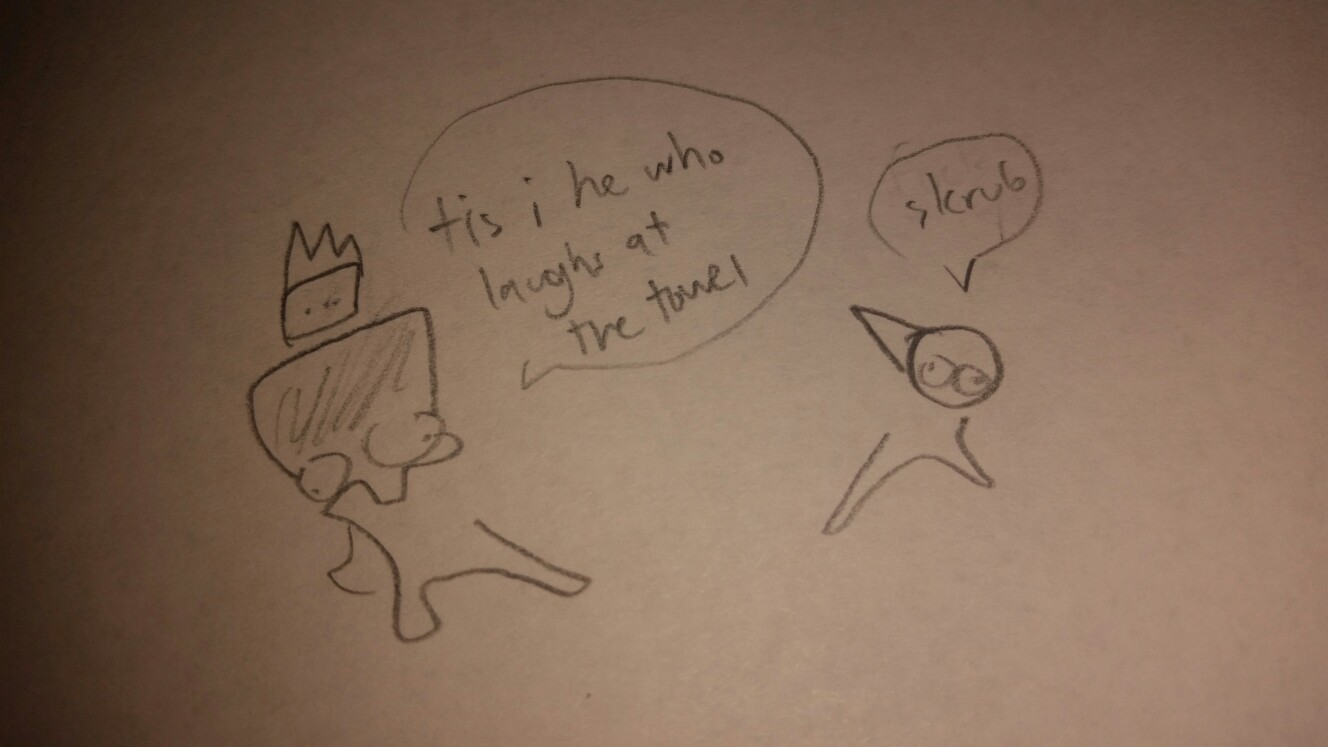 tis i he who
laughs at
the towel
skrub